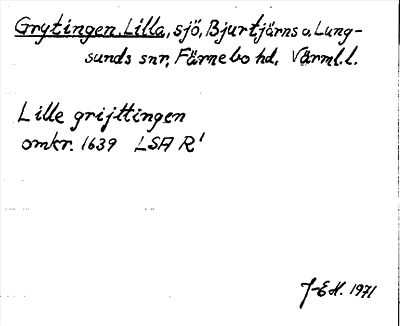 Grytingen. Lilla, sjö, Bjurtjärns o. Lung-
sunds snr, Färnebo hd, Värml.l.
Lille grijttingen
omkr. 1639 LSA R¹
J-EH. 1971